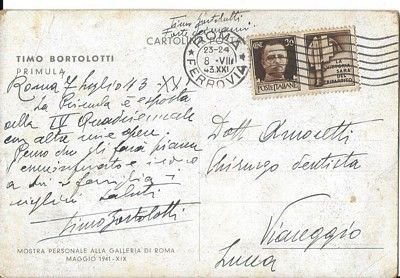 Timo Bortolotti
CARTOLINA
TIMO BORTOLOTTI
PRIMULA
ROMA
FERROVIA
23-24
8 - VII
43.XXI
CENT.
30
POSTE ITALIANE
LA
VITTORIA
SARÀ
DEL
TRICOLORE
Roma 7 luglio 43 - XX
La Primula è esposta
alla IV Quadriennale
con altre mie opere.
Penso che gli farà piacere
e invio
a Lei e famiglia i
migliori saluti
Timo Bortolotti
Dott.
Chirurgo dentista
Viareggio
Lucca
MOSTRA PERSONALE ALLA GALLERIA DI ROMA
MAGGIO 1941-XIX